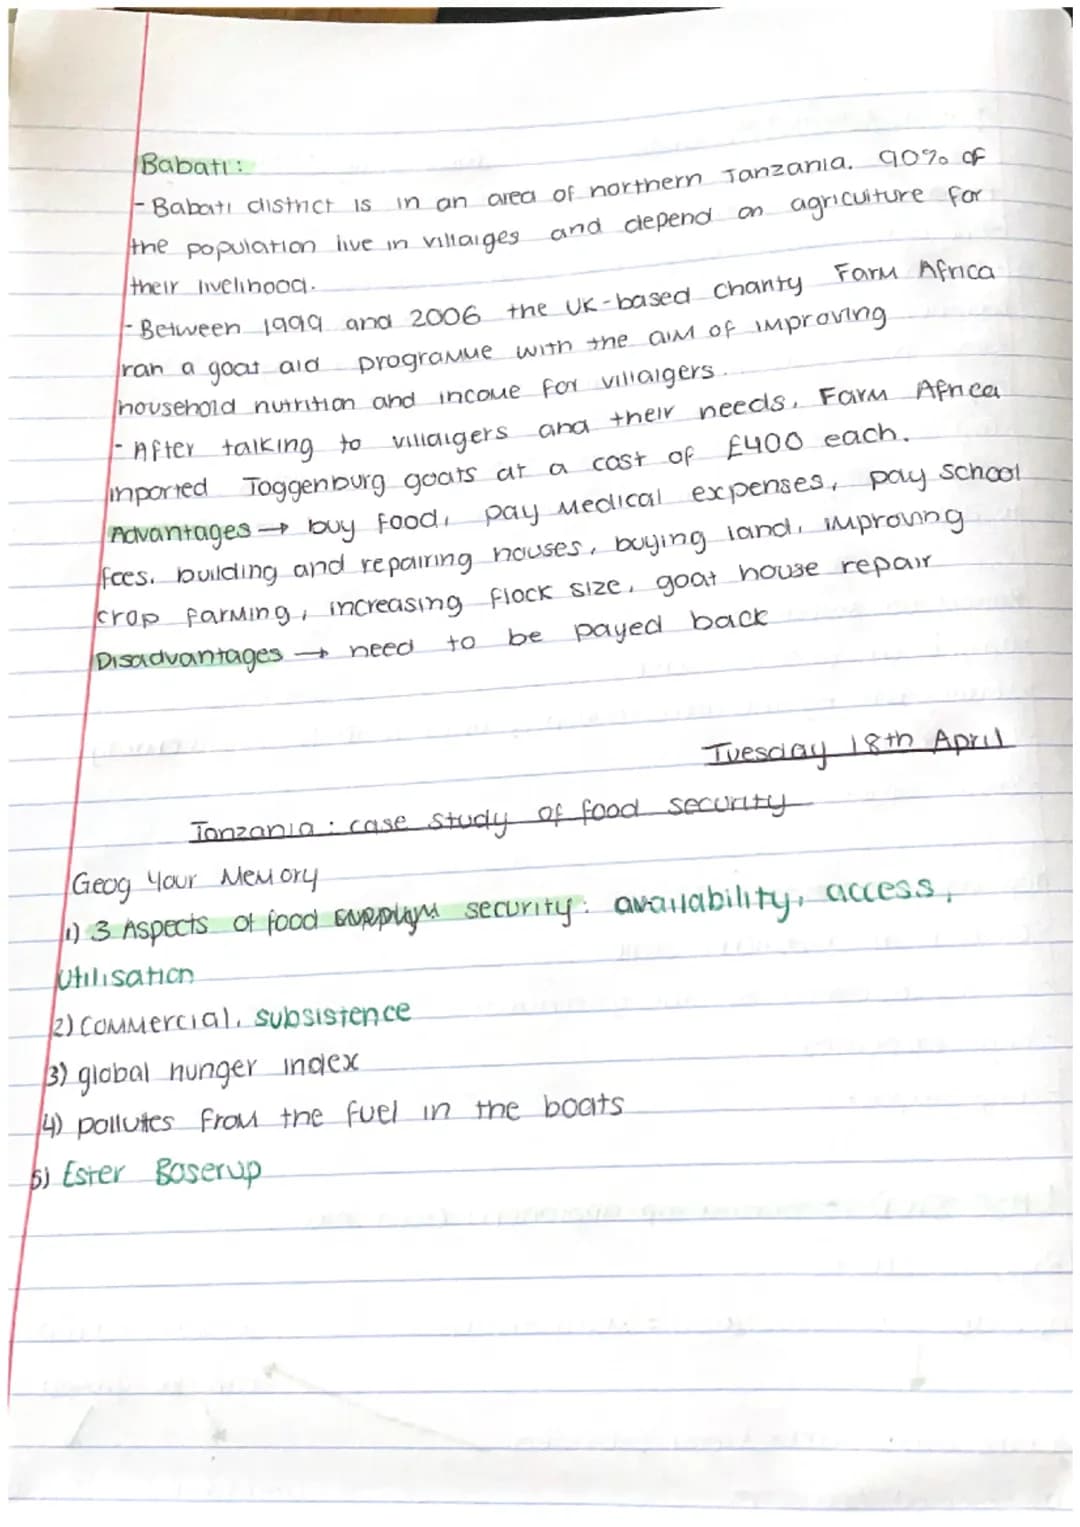 Babati:
- Babati district is in an area of northern Tanzania. 90% of
the population live in villaiges and depend on agriculture for
their livelihood.
- Between 1999 and 2006 the UK-based charity Farm Africa
ran a goat aid programme with the aim of improving
household nutrition and income for villaigers.
- After talking to villaigers and their needs, Farm Africa
inported Toggenburg goats at a cost of £400 each.
Advantages → buy food, pay medical expenses, pay school
fees, building and repairing houses, buying land, improving
crop farming, increasing flock size, goat house repair
Disadvantages → need to be payed back
Tuesday 18th April
Tanzania: case study of food security
Geog Your Memory
1) 3 Aspects of food security: availability, access,
Utilisation
2) Commercial, subsistence
3) global hunger index
4) pollutes from the fuel in the boats
5) Ester Boserup